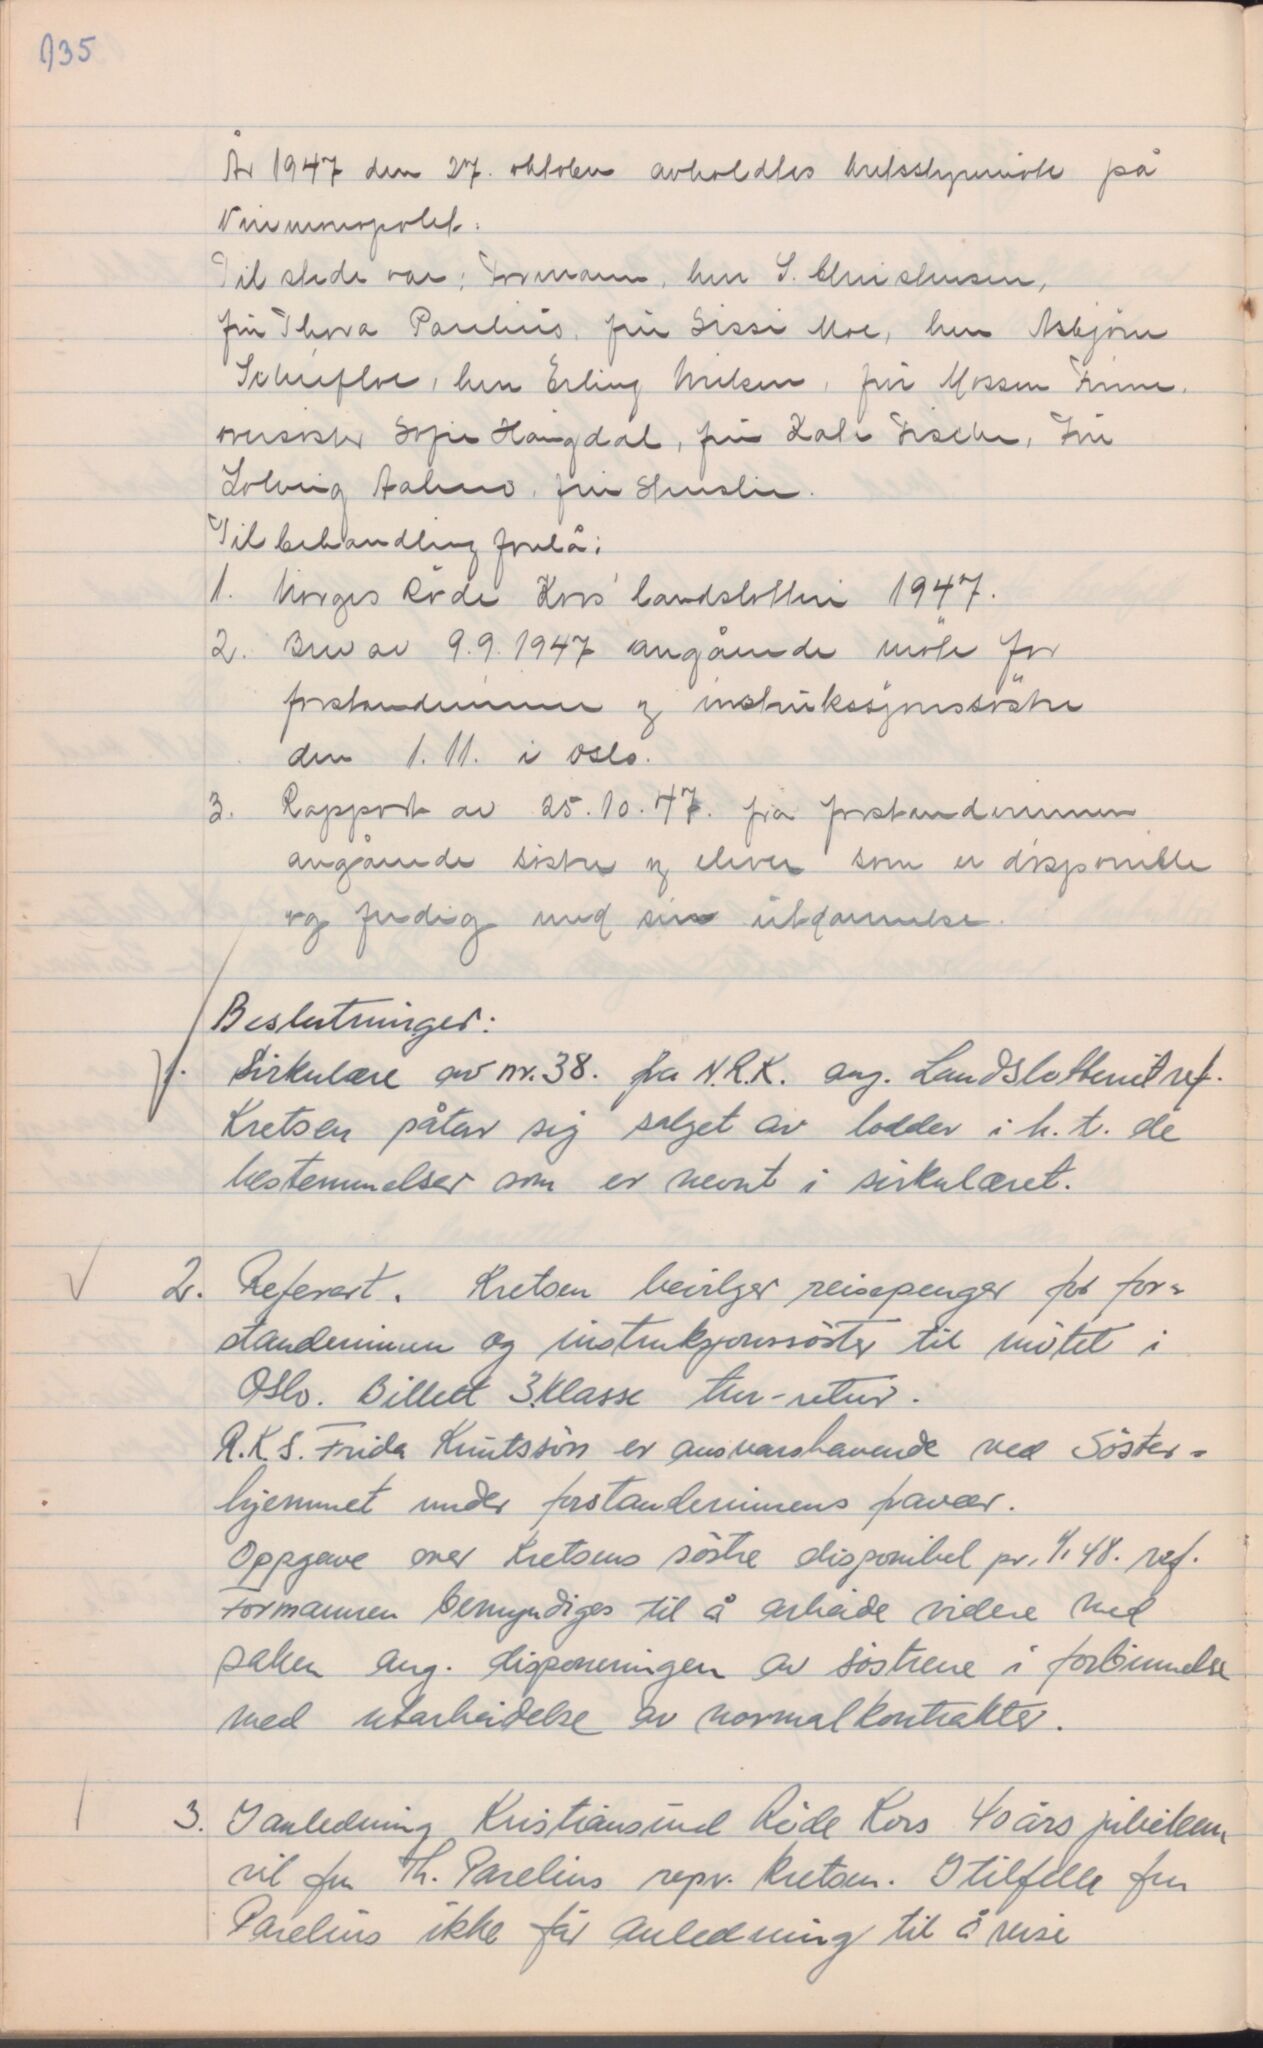 135
År 1947 den 27. oktober avholdtes kretsstyremöte på
Vinmonopolet.
Til stede var: Formann, herr S. Christensen,
frü Thora Parelius, frü Sissi Moe, herr Asbjörn
Schiefloe, herr Erling Nilsen, frü Mossen Finne,
oversöster Sofie Haugdal, frü Kate Fischer, Frü
Solveig, frü
Til behandling forelå:
1. Norges Röde Kors' landslotteri 1947.
2. Brev av 9.9.1947 angående möte for
forstanderinner og instruksjonssöstre
den 1.11. i Oslo.
3. Rapport av 25.10.47. fra forstanderinnen
angående söstre og elever som er disponible
og ferdig med sin utdannelse.
Beslutninger:
1. Sirkulære av nr. 38. fra N.R.K. ang. Landslotteriet ref.
Kretsen påtar sig salget av lodder i h.t. de
bestemmelser som er nevnt i sirkulæret.
2. Referert. Kretsen bevilger reisepenger for for=
standerinnen og instruksjonssöster til mötet i
Oslo. Billett 3.klasse tur-retur.
R.K.S. Frida Knutssön er ansvarshavende ved Söster=
hjemmet under forstanderinnens fravær.
Oppgave over Kretsens söstre disponibel pr. 1/1 48. ref.
Formannen bemyndiges til å arbeide videre med
saken ang. disponeringen av söstrene i forbinnelse
med utarbeidelse av normalkontrakter.
3. I anledning Kristiansund Röde Kors 40 års jubileum
vil fru Th. Parelius repr. Kretsen. I tilfelle fru
Parelius ikke får anledning til å reise